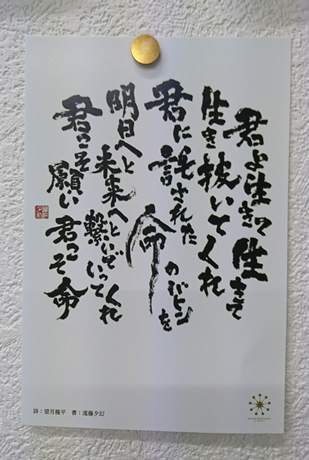 君よ生きて生きて
生き抜いてくれ
君に託された
命のバトンを
明日へと未来へと繋いでいってくれ
君こそ願い君こそ命
詩:望月龍平 書:遠藤夕幻